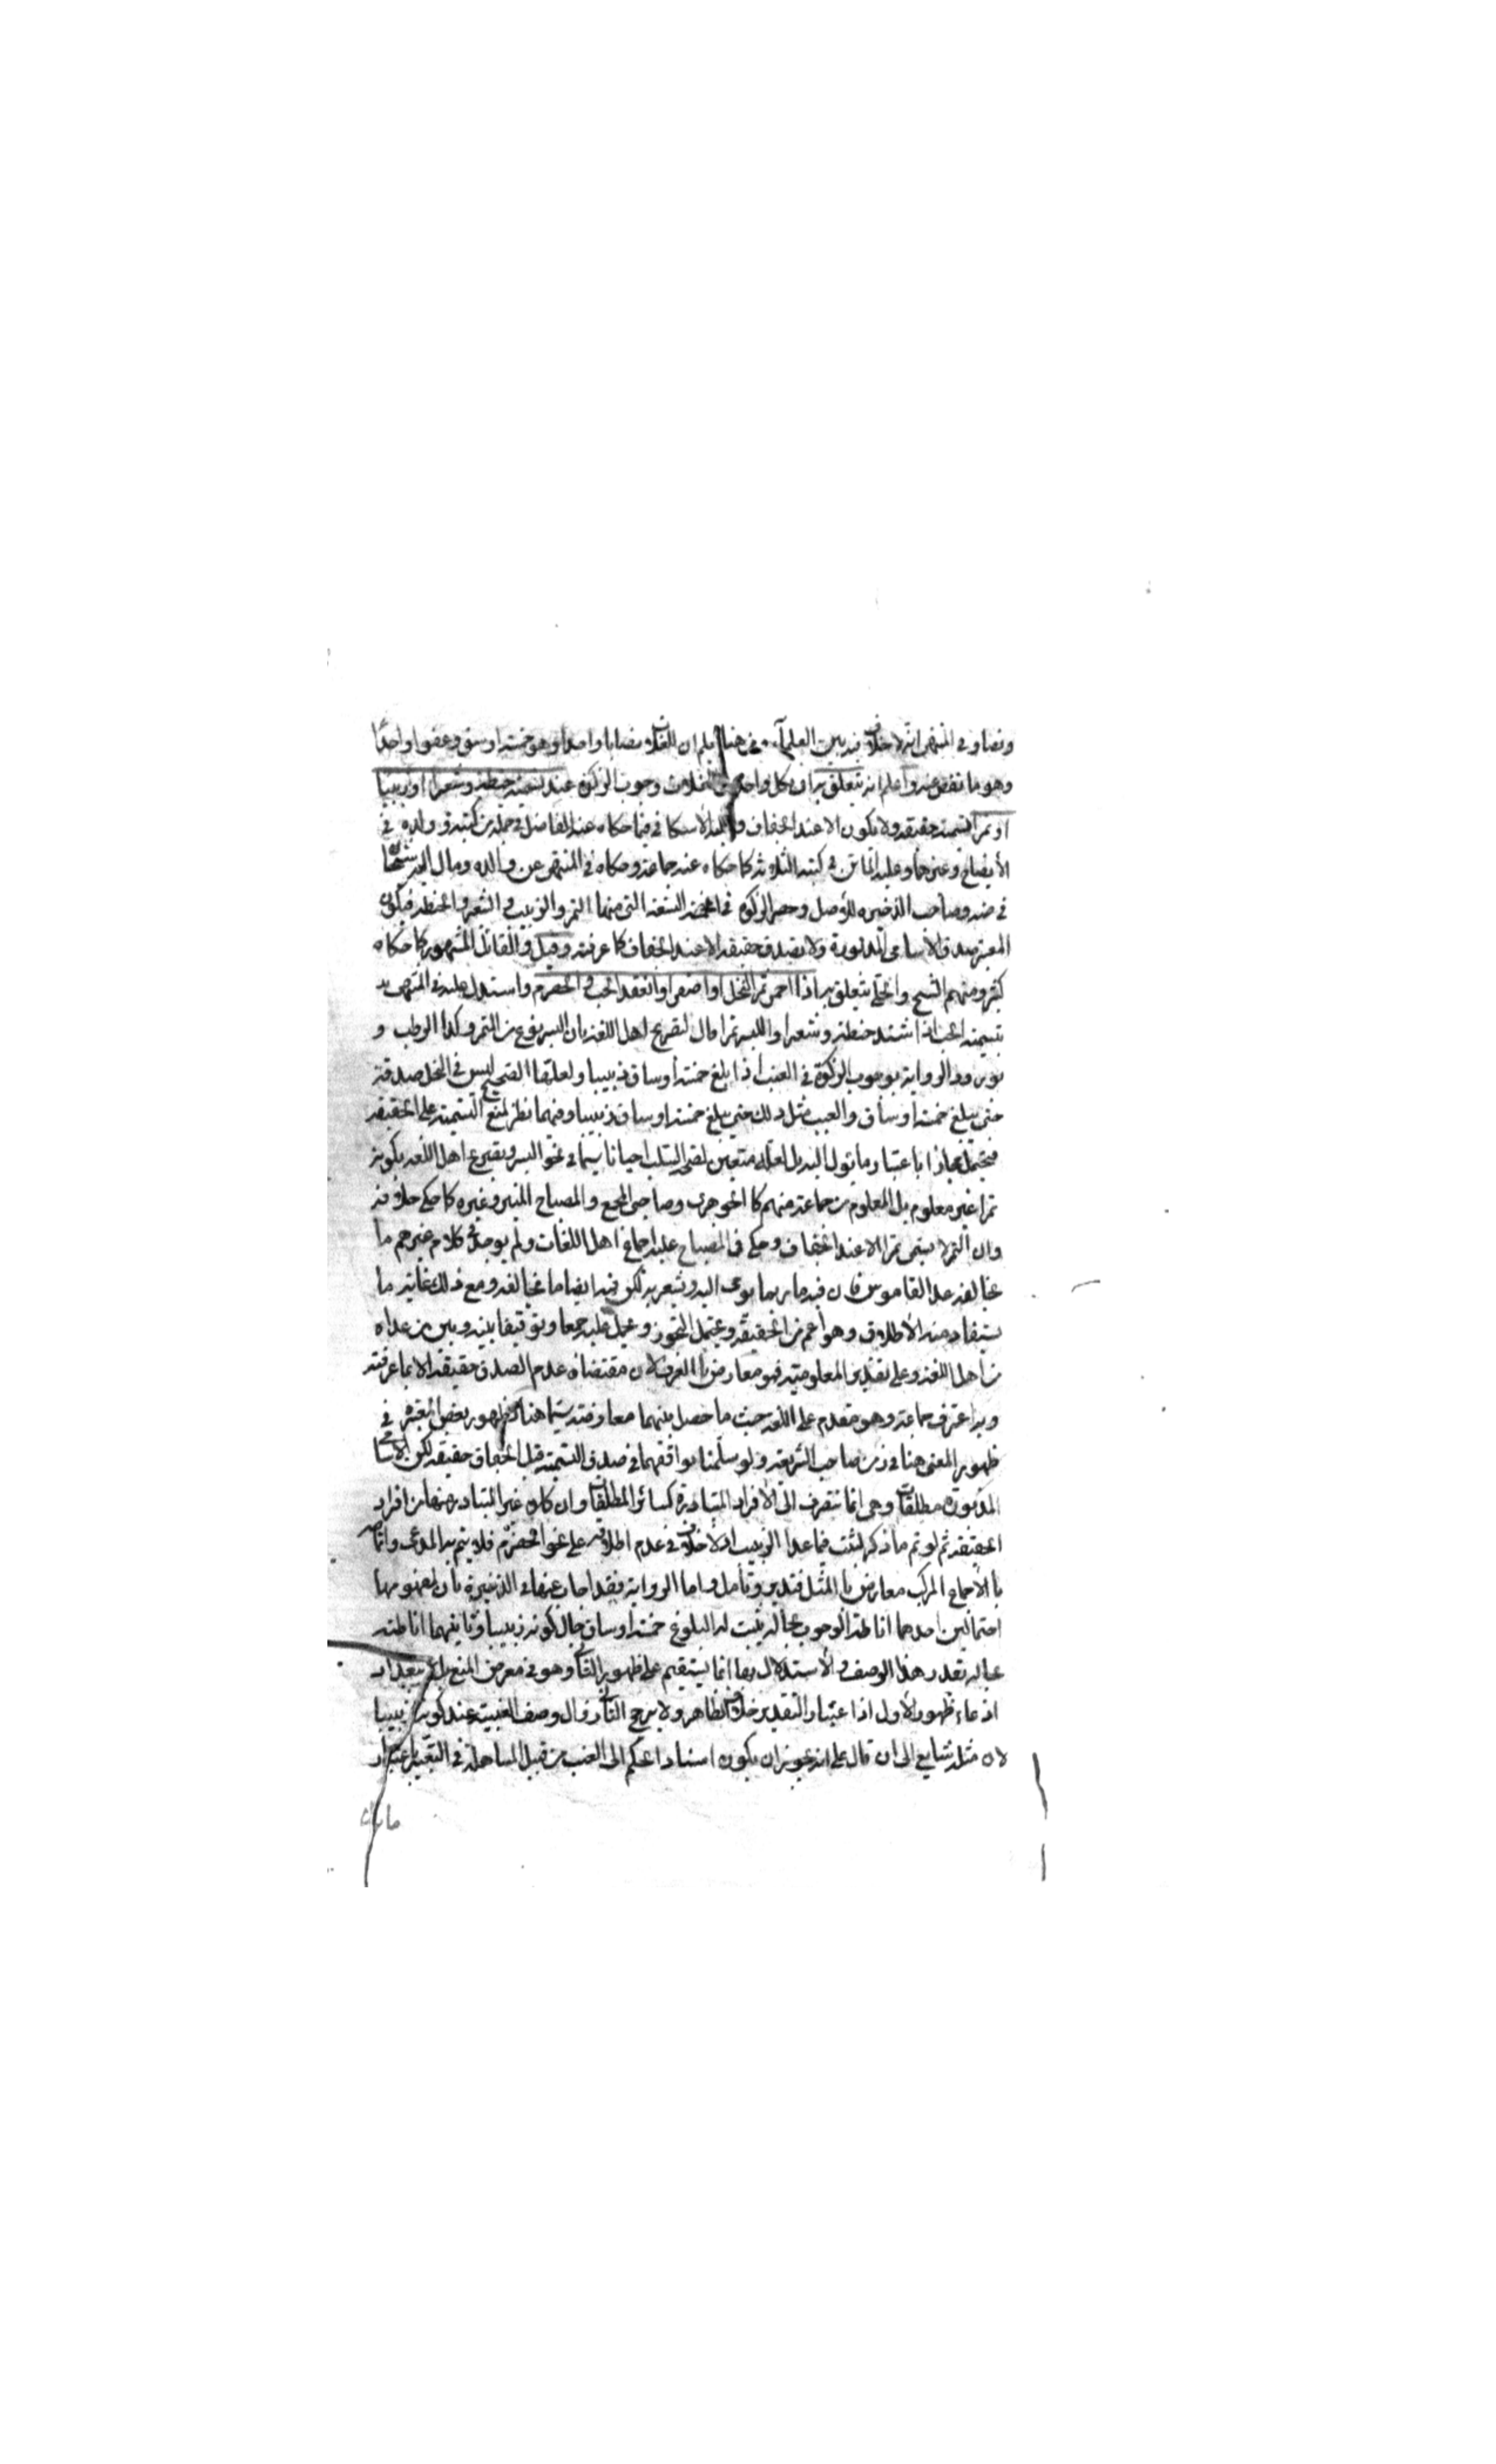 ونصا وفي المنتهى انه لا خلاف فيه بين العلماء ومن هنا يعلم ان للغلات نصابا واحدا وهو خمسة اوسق وعفوا واحدا
وهو ما نقص عنه واعلم انه يتعلق بر ان بكل واحد من الغلات وجوب الزكوة عند تسميته حنطة وشعيرا او زبيبا
او تمرا تسمية حقيقة ولا يكون الا عند الجفاف وعليه الاسكافي فيما حكاه عنه الفاضل في جملة من كتبه وولده في
الايضاح وغيرهما وعليه الماتن في كتبه الثلاثة كما حكاه عنه جماعة وحكاه في المنتهى عن والده ومال اليه شيخنا
في ضه وصاحب الذخيرة للاصل وحصر الزكوة في الخمسة التسعة التى منها التمر والزبيب والشعير والحنطة فيكون
المعتبر صدق الاسامى المذبورة ولا يصدق حقيقة الا عند الجفاف كما عرفته وقيل والقائل المشهور كما حكاه
كثير ومنهم الشيخ والحلي يتعلق به اذا احمر ثمر النخل او اصفر او انعقد الحب والحصرم واستدل عليه في المنتهى بـ
بتسميته الحب اذا اشتد حنطة وشعيرا والبسر تمرا وقال لتصريح اهل اللغة بان البسر نوع من التمر وكذا الرطب و
بورود الرواية بوجوب الزكوة في العنب اذا بلغ خمسة اوساق زبيبا ولعلها الصحيح ليس في النخل صدقة
حتى يبلغ خمسة اوساق والعنب مثل ذلك حتى يبلغ خمسة اوساق زبيبا وفيهما نظر لمنع التسمية على الحقيقة
فيحتمل مجازا باعتبار ما يؤل اليه بل لعله متعين لصحة السلب احيانا سيما في نحو البسر وتصريح اهل اللغة بكونه
تمرا غير معلوم بل المعلوم من جماعة منهم كالجوهرى وصاحبى المجمع والمصباح المنير وغيره كما حكى خلافه
وان التمر لا يسمى تمرا الا عند الجفاف وحكى في المصباح عليه اجماع اهل اللغات ولم يوجد في كلام غيرهم ما
يخالفه عدا القاموس فان فيه ما ربما يومى اليه ويشعر به لكن فيه ايضا ما يخالفه ومع ذلك غايته ما
يستفاد منه الاطلاق وهو اعم من الحقيقة ويحتمل التجوز ويحمل عليه جمعا وتوفيقا بينه وبين من عداه
من اهل اللغة وعلى تقدير المعلومية فهو معارض بالعرف لان مقتضاه عدم الصدق حقيقة الا بما عرفته
وبه اعترف جماعة وهو مقدم على اللغة حيث ما حصل بينهما معارضة سيما هنا لظهور بعض المعتبرة في
ظهور المعنى هنا في زمن صاحب الشريعة ولو سلمنا توافقهما في صدق التسمية قبل الجفاف حقيقة لكن الاسامى
المذبورة مطلقات وهى انما تنصرف الى الافراد المتبادرة كسائر المطلقات وان كان غير المتبادر منها من افراد
الحقيقة ثم لو تم ما ذكر لثبت فيما عدا الزبيب اذ لا خلاف في عدم اطلاقه على نحو الحصرم فلا يتم به المدعى واتمامه
بالاجماع المركب معارض بالمثل فتدبر وتأمل واما الرواية فقد اجاب عنها في الذخيرة بان لمفهومها
احتمالين احدهما اناطة الوجوب بحالة يثبت له البلوغ خمسة اوساق حال كونه زبيبا وثانيهما اناطته
بحالة تقدر هذا الوصف والاستدلال بها انما يستقيم على ظهور الثانى وهو في معرض المنع بل لا يبعد اد
ادعاء ظهور الاول اذ اعتبار التقدير خلاف الظاهر ولا يرجح الثانى زوال وصف العنبية عند كونه زبيبا
لان مثله شايع الى ان قال على انه يجوز ان يكون اسناد الحكم الى العنب من قبيل المساهلة في التعبير باعتبار